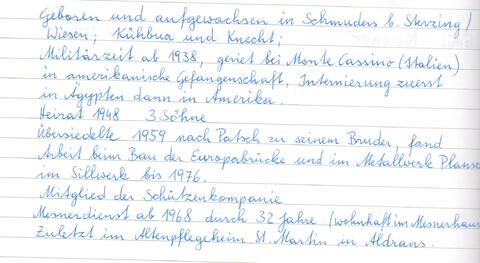 Geboren und aufgewachsen in Schmuders b. Sterzing/
Wiesen; Kühbua und Knecht;
Militärzeit ab 1938, geriet bei Monte Cassino (Italien)
in amerikanische Gefangenschaft, Internierung zuerst
in Ägypten dann in Amerika.
Heirat 1948 3 Söhne
Übersiedelte 1959 nach Patsch zu seinem Bruder, fand
Arbeit beim Bau der Europabrücke und im Metallwerk Planse
im Sillwerk bis 1976.
Mitglied der Schützenkompanie
Mesnerdienst ab 1968 durch 32 Jahre (wohnhaft im Mesnerhaus
Zuletzt im Altenpflegeheim St. Martin in Aldrans.